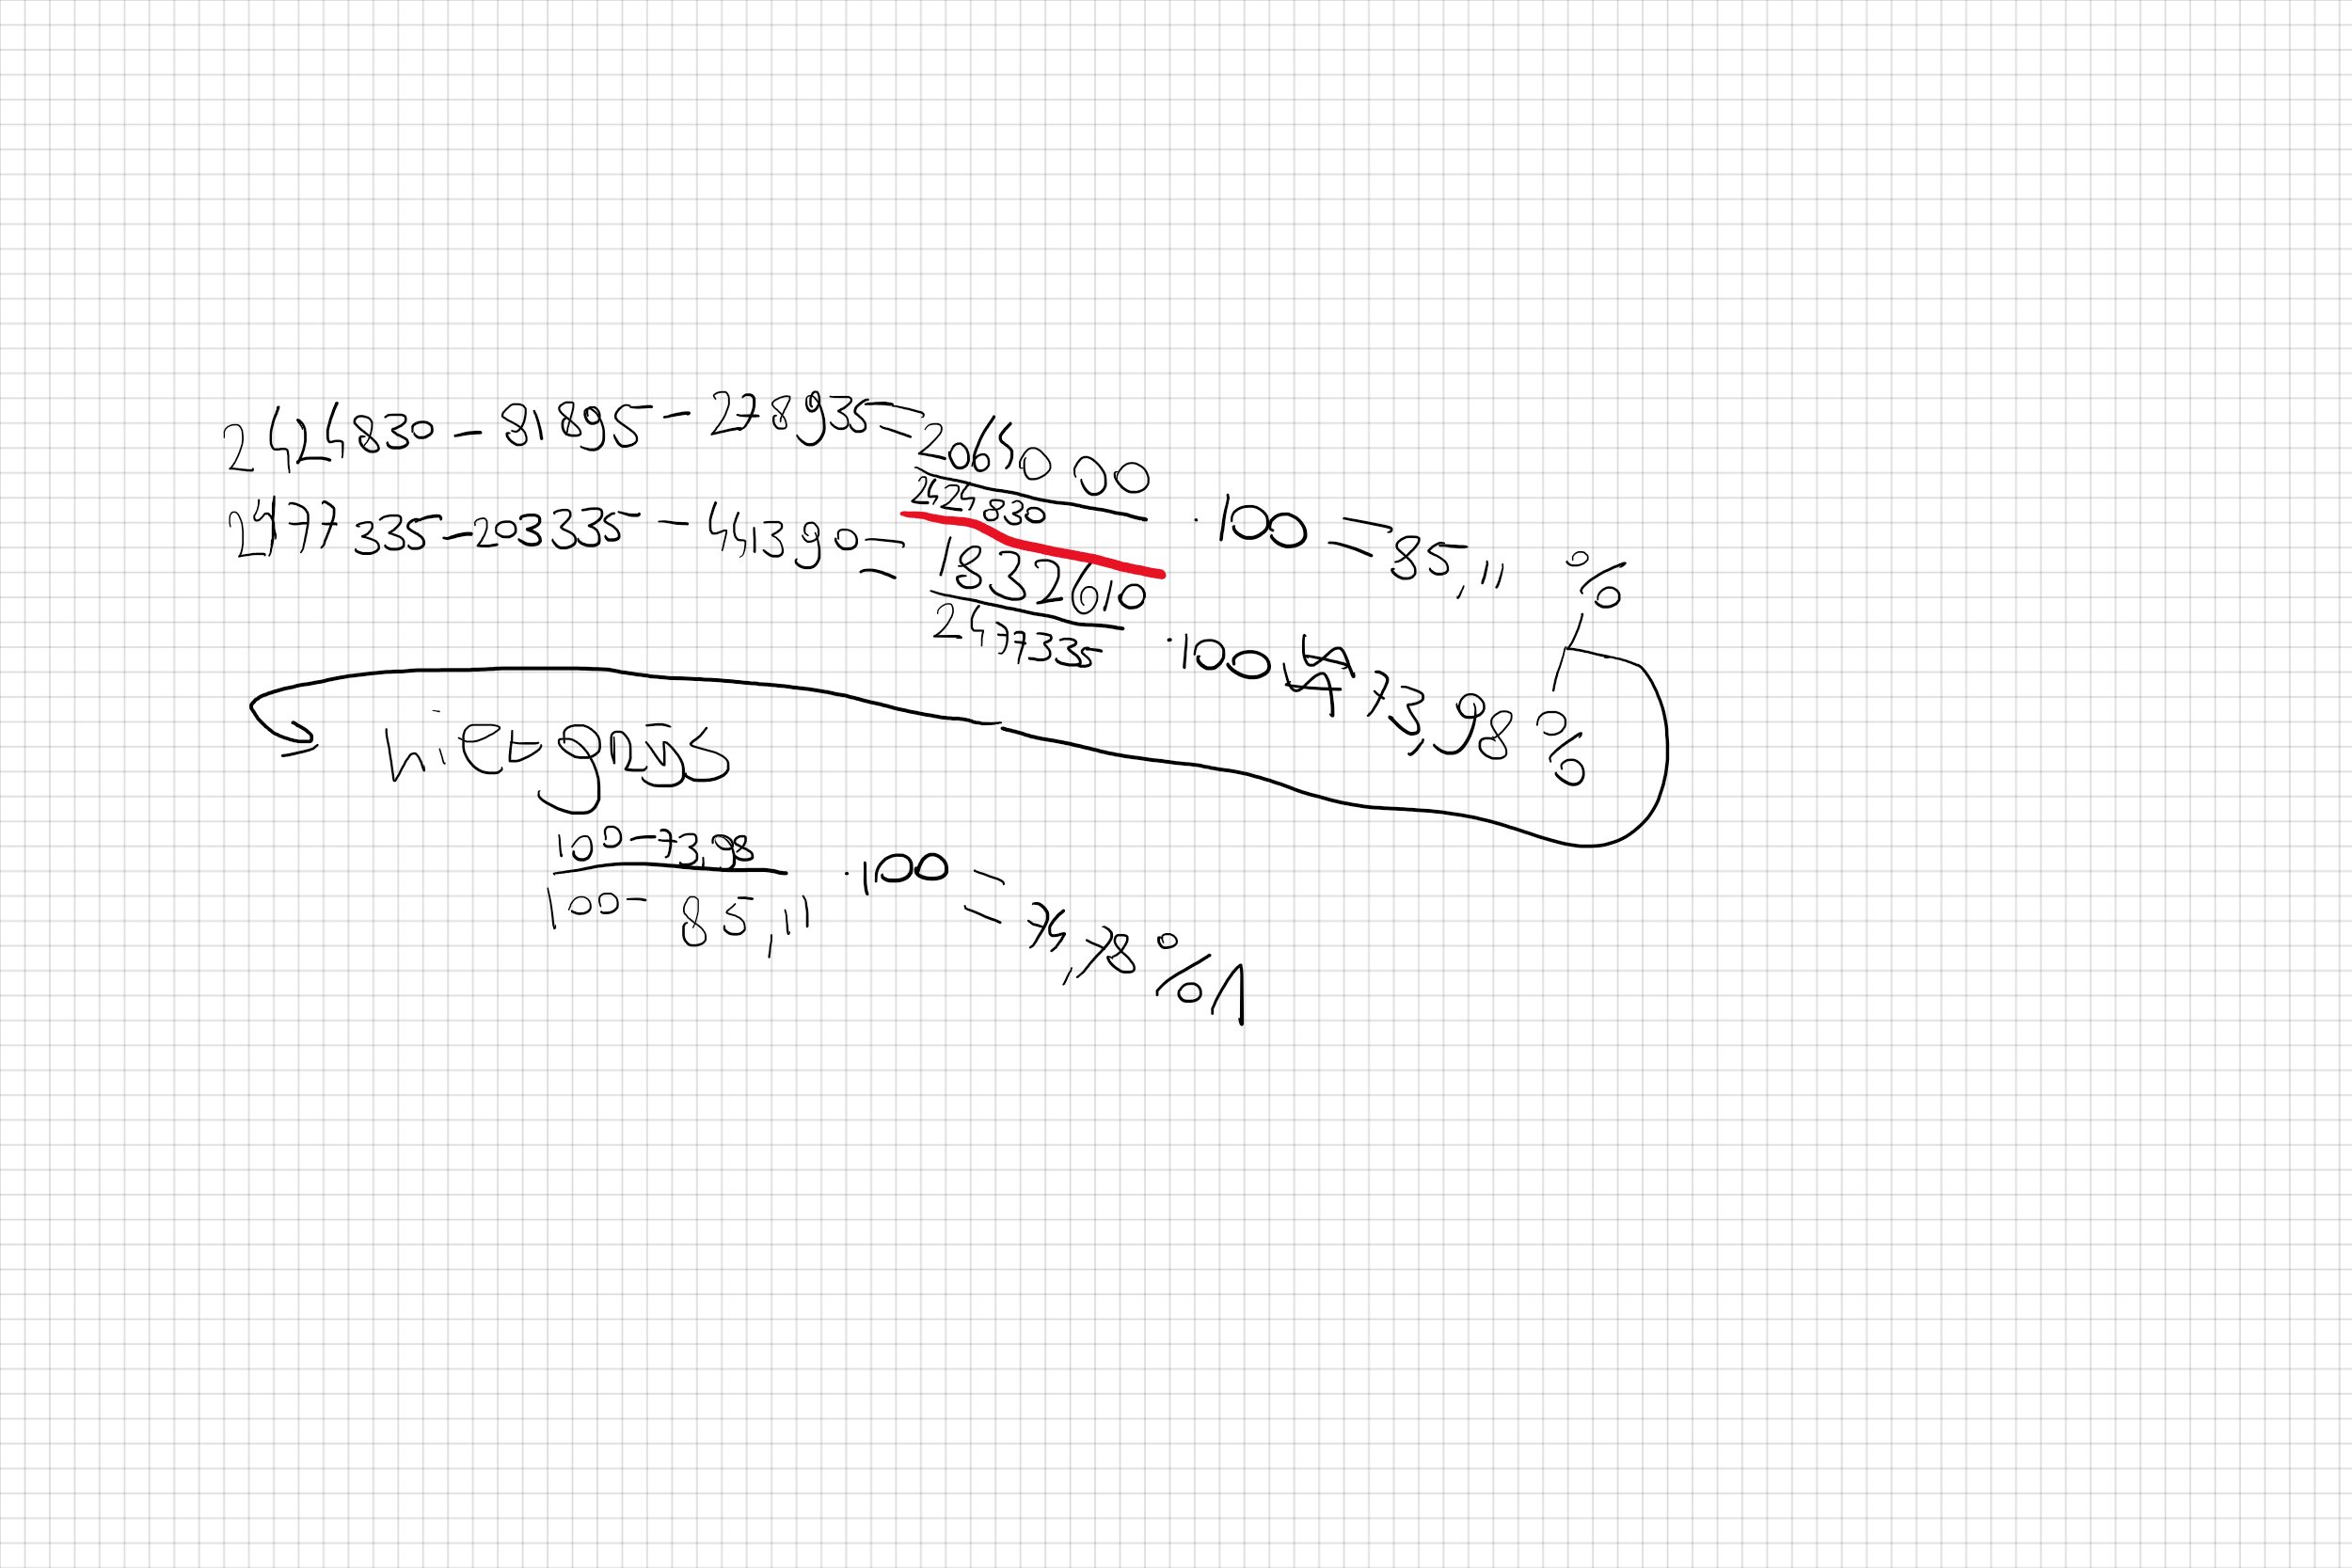 2424830 - 81895 - 278935 = 2064000
2424830 · 100 = 85,11 %
2477335 - 203335 - 441390 = 1832610
2477335 · 100 = 73,98 %
100 - 73,98
100 - 85,11 · 100 = 74,78 % 1